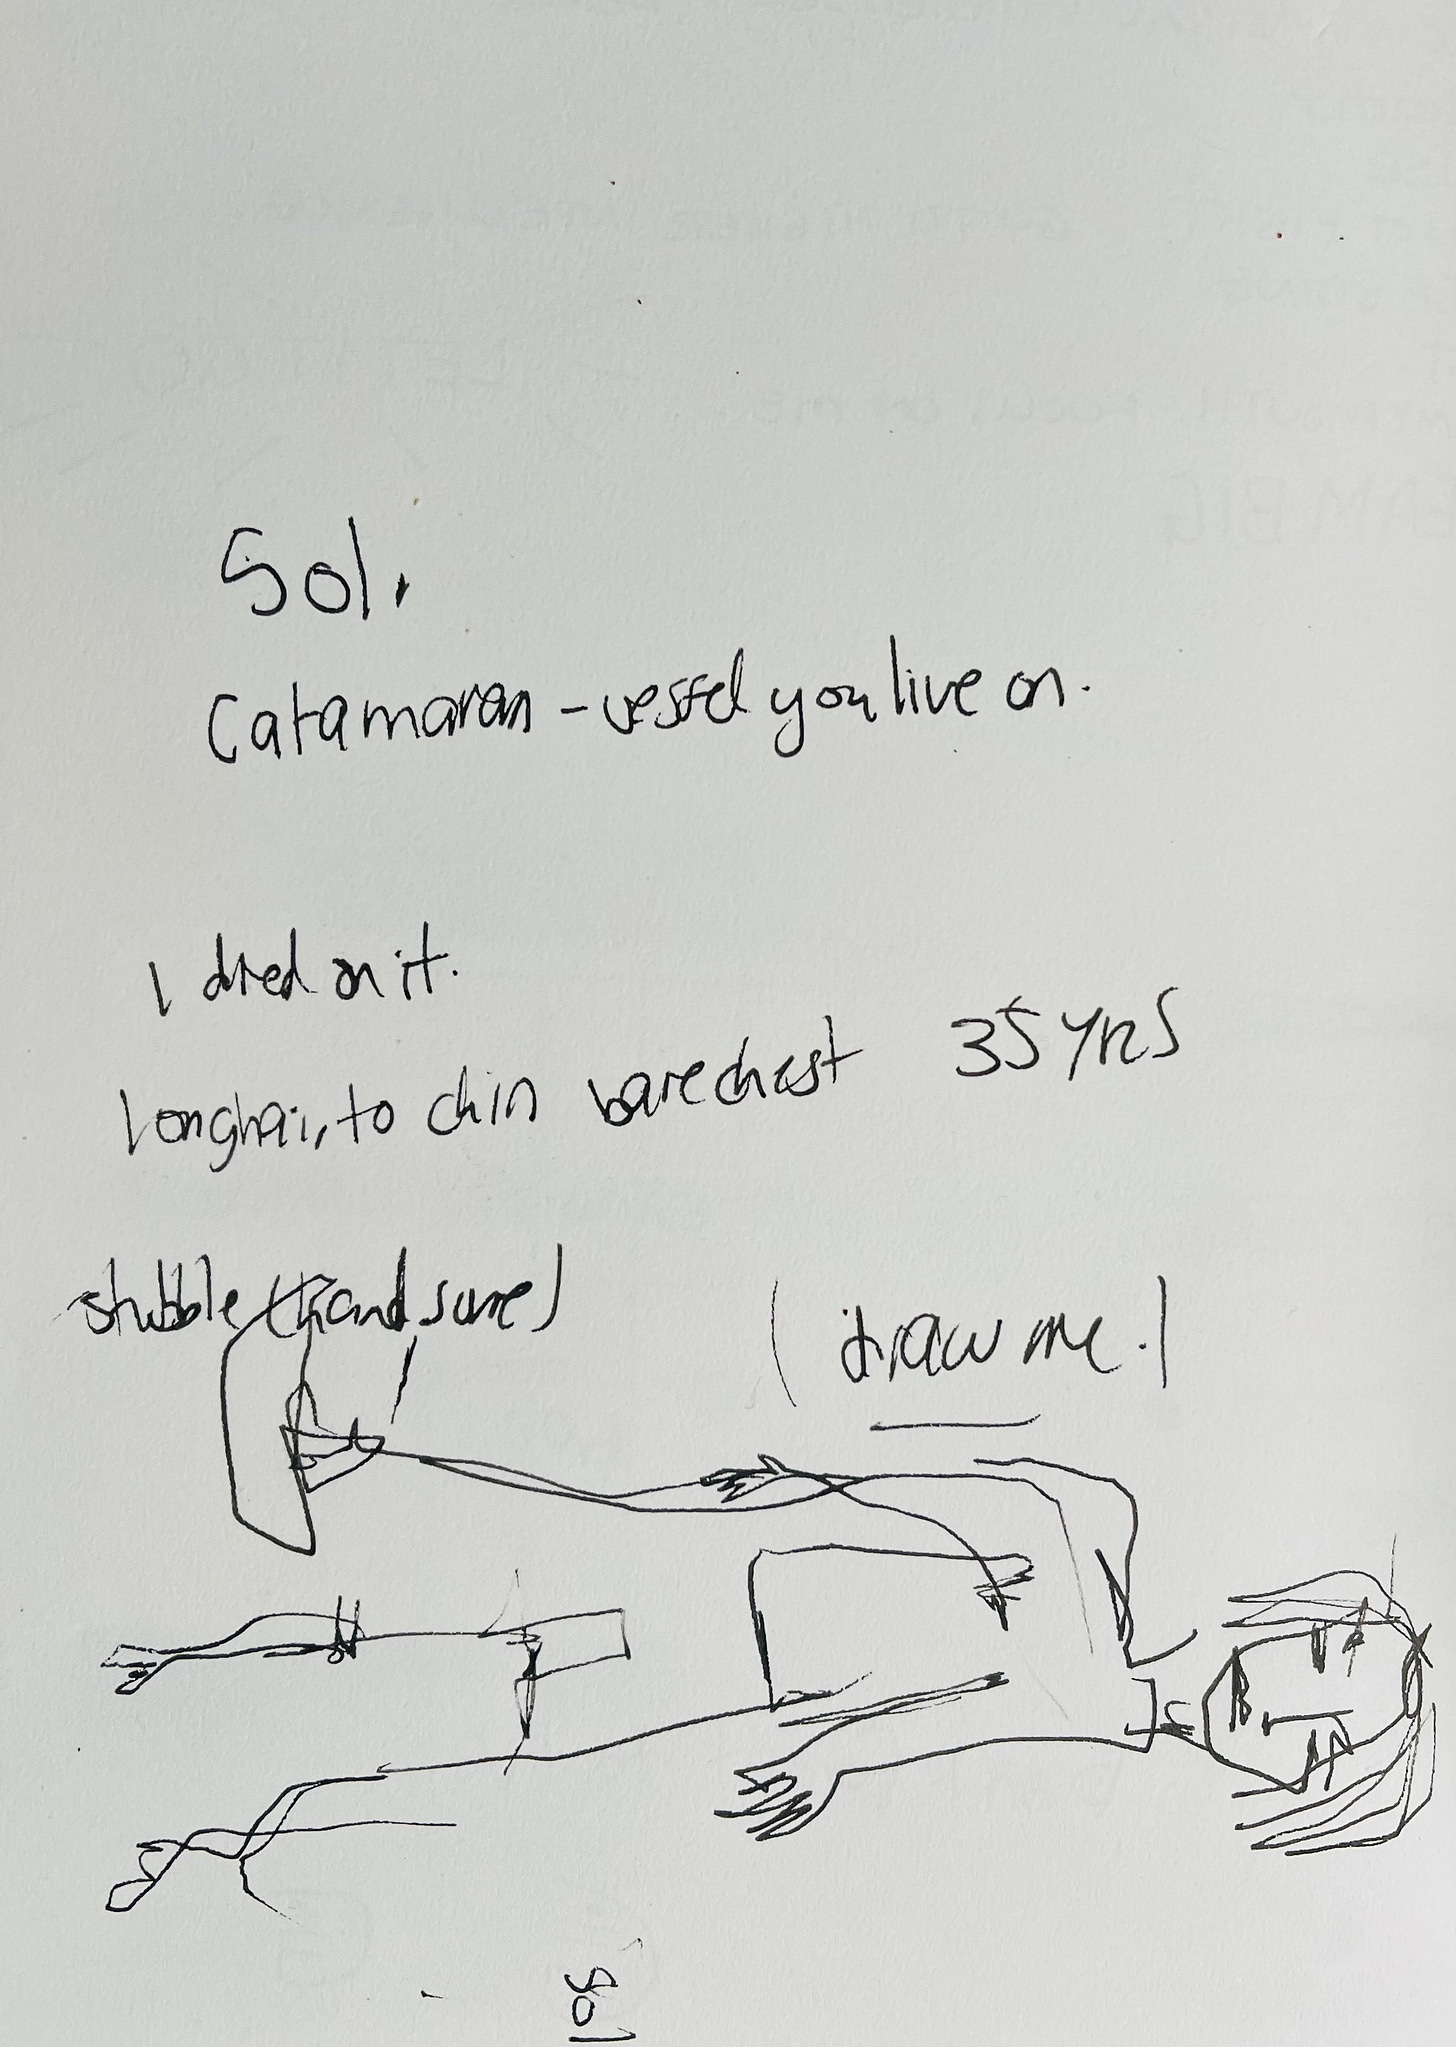 Sol.
Catamaran - vessel you live on.
I died on it.
longhair, to chin barechest 35 YRS
stubble (handsome)
(draw me.)
Sol